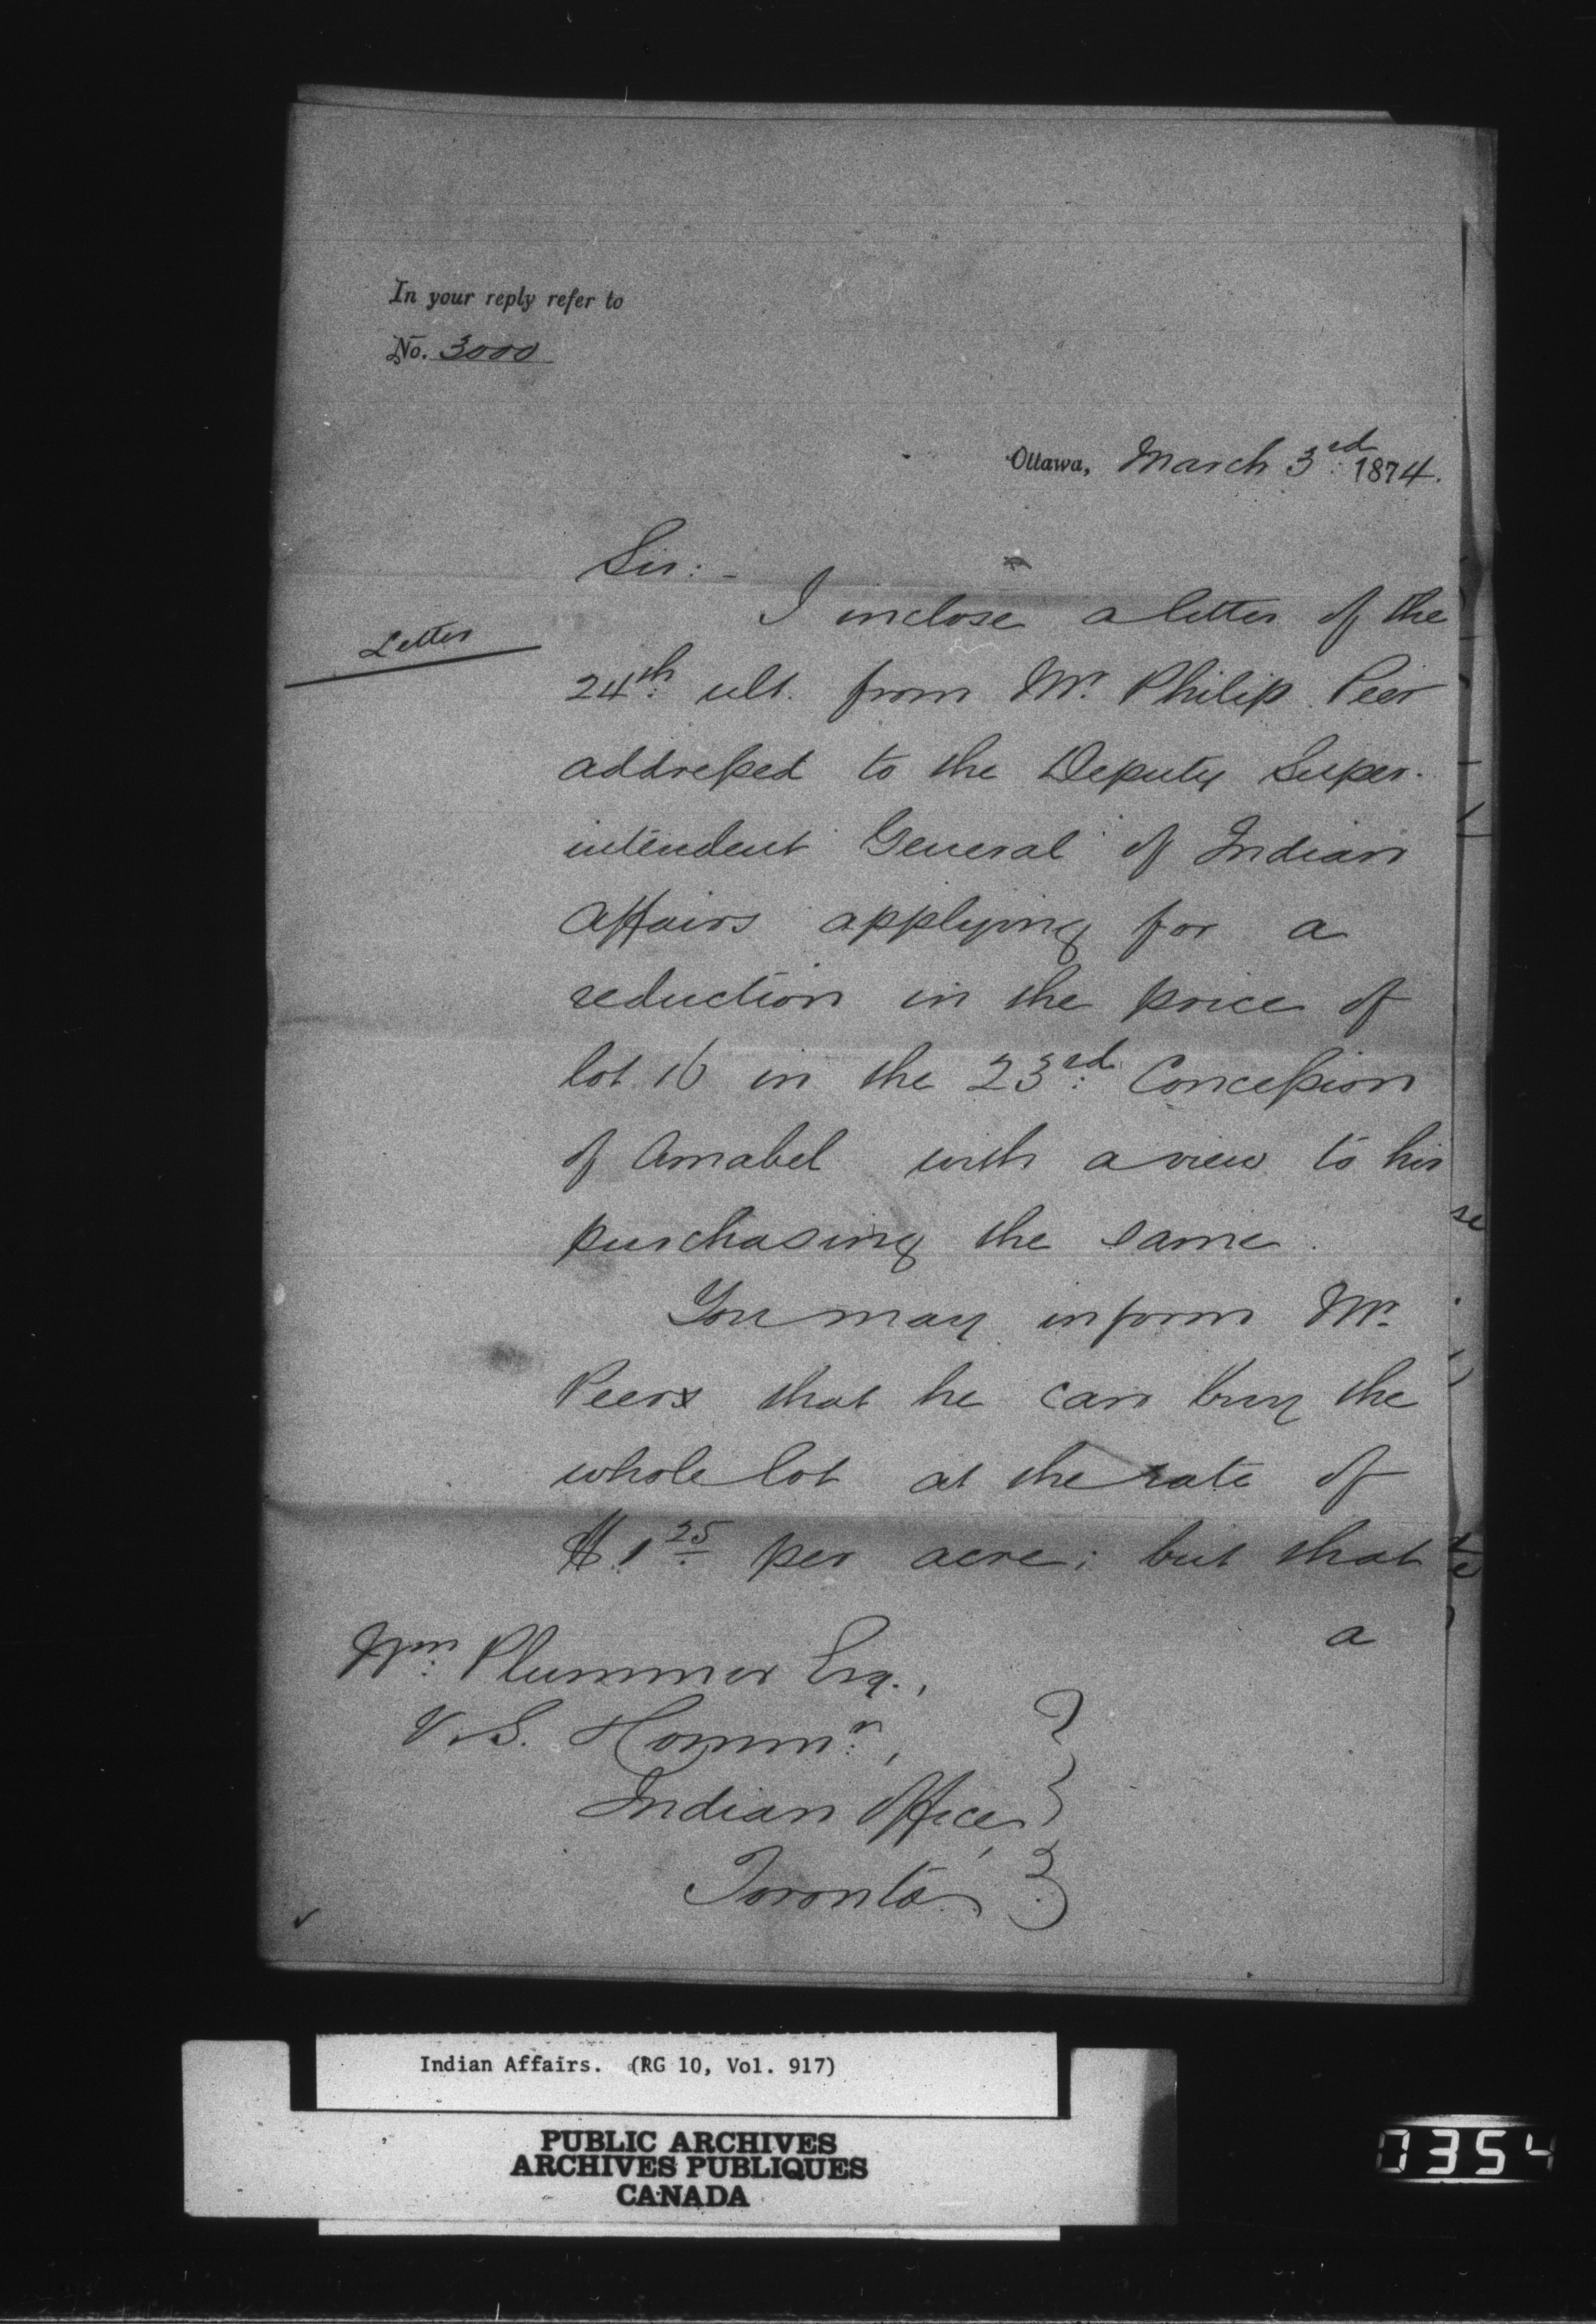 In your reply refer to
No. 3000
Ottawa, March 3rd 1874.
Sir:-
Letter
I inclose a letter of the
24th ult. from Mr. Philip Peer
addressed to the Deputy Super-
intendent General of Indian
Affairs applying for a
reduction in the price of
lot 16 in the 23rd Concession
of Amabel with a view to his
purchasing the same.
You may inform Mr.
Peer that he can buy the
whole lot at the rate of
$1.25 per acre; but that
a
Wm. Plummer Esq.,
V. S. Commr.,
Indian Office,
Toronto.
Indian Affairs. (RG 10, Vol. 917)
PUBLIC ARCHIVES
ARCHIVES PUBLIQUES
CANADA
0354